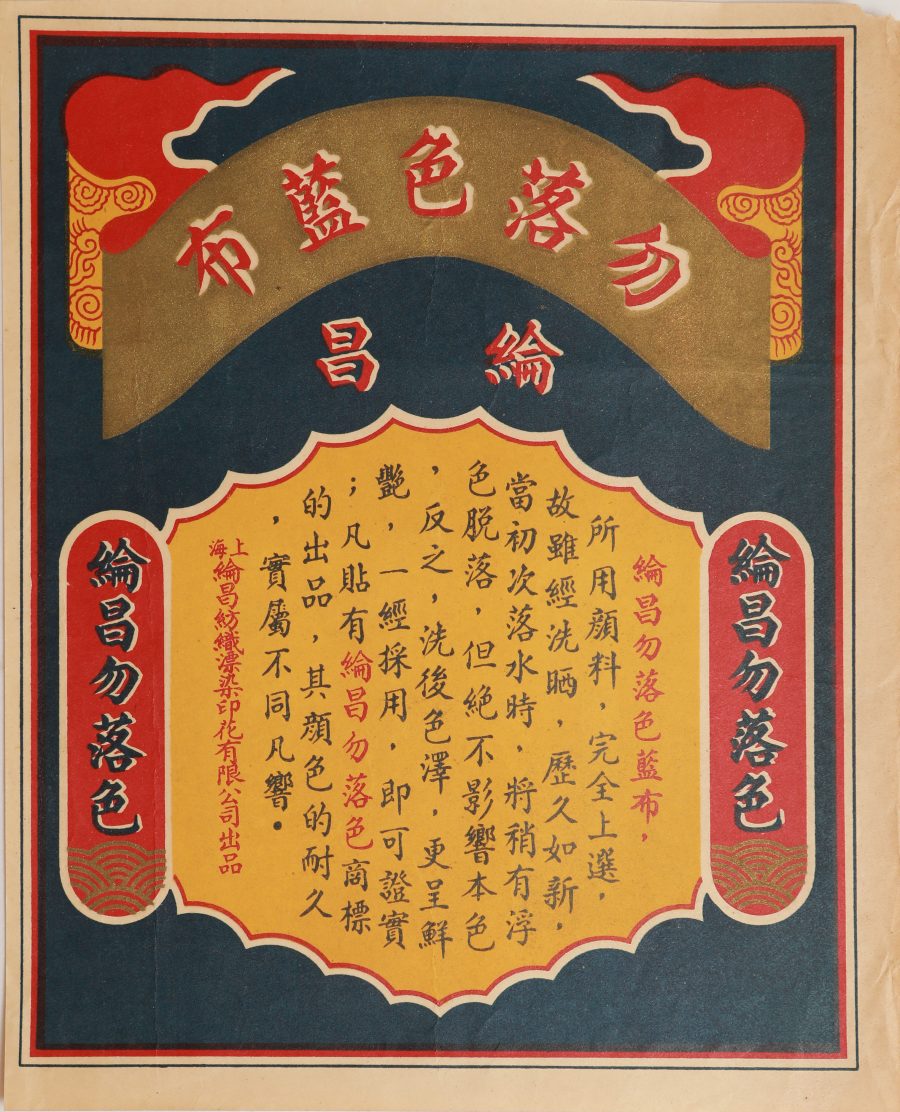 勿落色藍布
綸昌
綸昌勿落色
綸昌勿落色藍布，
所用顔料，完全上選，
故雖經洗晒，歷久如新，
當初次落水時，將稍有浮
色脱落，但絕不影響本色
，反之，洗後色澤，更呈鮮
艷，一經採用，即可證實
；凡貼有綸昌勿落色商標
的出品，其顔色的耐久
，實屬不同凡響。
上海綸昌紡織漂染印花有限公司出品
綸昌勿落色